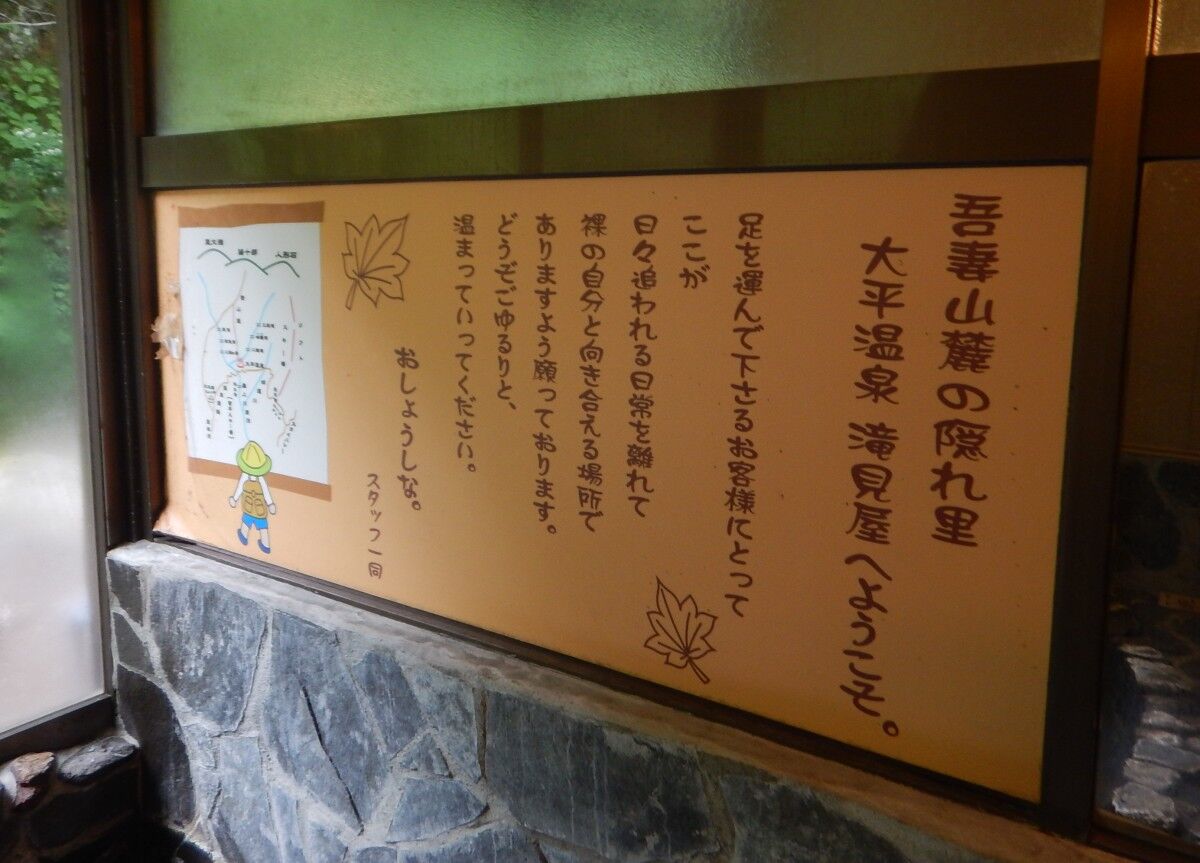 吾妻山麓の隠れ里
大平温泉 滝見屋へようこそ。
足を運んで下さるお客様にとって
ここが
日々追われる日常を離れて
裸の自分と向き合える場所で
ありますよう願っております。
どうぞごゆるりと、
温まっていってください。
おしょうしな。
スタッフ一同
人形石